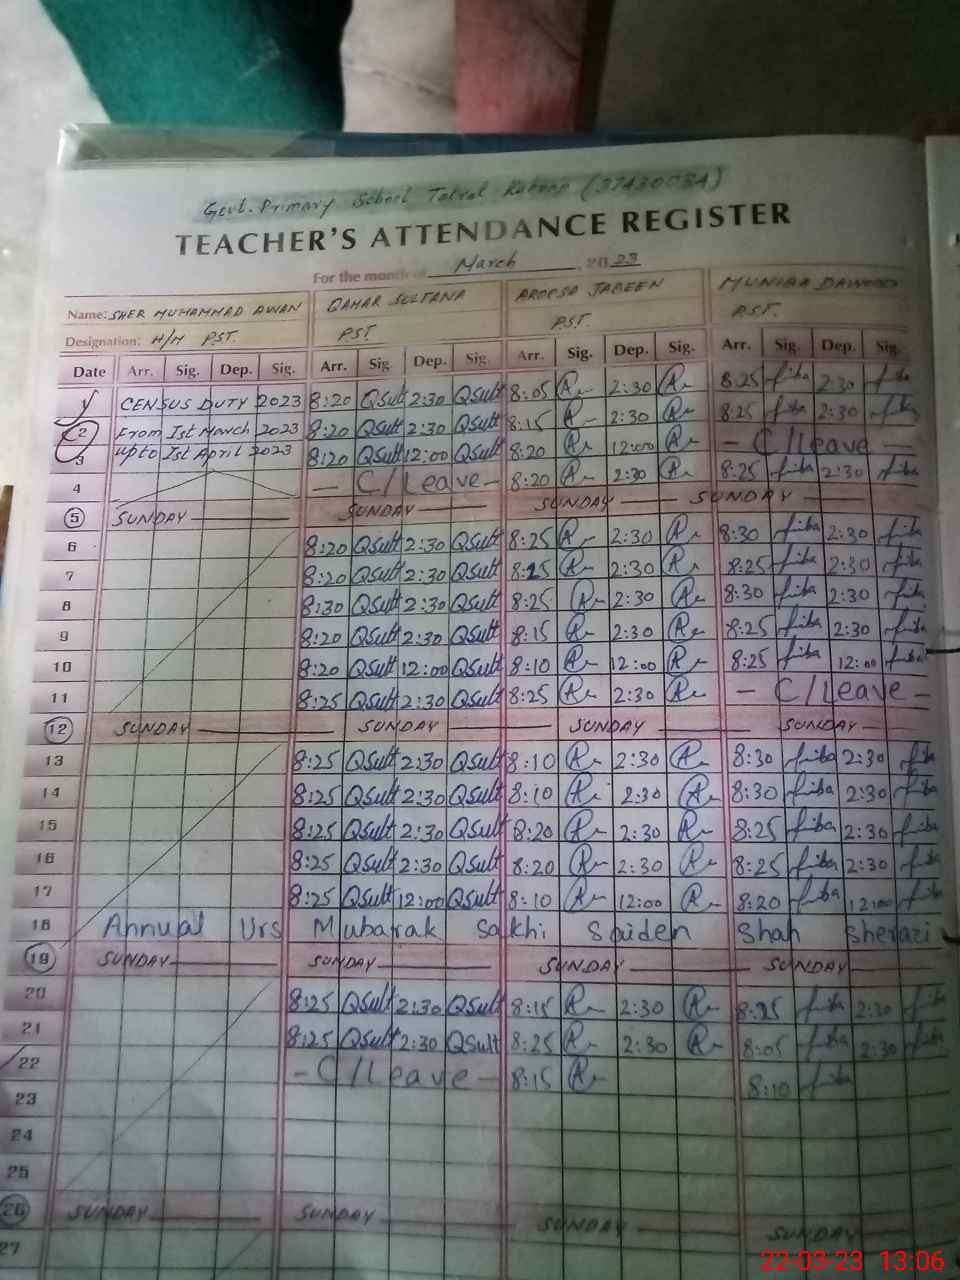 Govt. Primary School Tatral Kahoon (37430034)
TEACHER'S ATTENDANCE REGISTER
For the month of March, 2023
Name: SHER MUHAMMAD AWAN QAMAR SULTANA AROOSA JABEEN MUNIBA DAWOOD
Designation: H/M P.S.T. P.S.T. P.S.T. P.S.T.
Date Arr. Sig. Dep. Sig. Arr. Sig. Dep. Sig. Arr. Sig. Dep. Sig. Arr. Sig. Dep. Sig.
1 CENSUS DUTY 2023 8:20 QSult 2:30 QSult 8:05 2:30 8:25 2:30
2 From Ist March 2023 8:20 QSult 2:30 QSult 8:15 2:30 8:25 2:30
3 upto Ist April 2023 8:20 QSult 12:00 QSult 8:20 12:00 - C/Leave -
4 - C/Leave - 8:20 2:30 8:25 2:30
5 SUNDAY SUNDAY SUNDAY SUNDAY
6 8:20 QSult 2:30 QSult 8:25 2:30 8:30 2:30
7 8:20 QSult 2:30 QSult 8:25 2:30 8:25 2:30
8 8:30 QSult 2:30 QSult 8:25 2:30 8:30 2:30
9 8:20 QSult 2:30 QSult 8:15 2:30 8:25 2:30
10 8:20 QSult 12:00 QSult 8:10 12:00 8:25 12:00
11 8:25 QSult 2:30 QSult 8:25 2:30 - C/Leave -
12 SUNDAY SUNDAY SUNDAY SUNDAY
13 8:25 QSult 2:30 QSult 8:10 2:30 8:30 2:30
14 8:25 QSult 2:30 QSult 8:10 2:30 8:30 2:30
15 8:25 QSult 2:30 QSult 8:20 2:30 8:25 2:30
16 8:25 QSult 2:30 QSult 8:20 2:30 8:25 2:30
17 8:25 QSult 12:00 QSult 8:10 12:00 8:20 12:00
18 Annual Urs Mubarak Sakhi Saiden Shah Sherazi
19 SUNDAY SUNDAY SUNDAY SUNDAY
20 8:25 QSult 2:30 QSult 8:15 2:30 8:25 2:30
21 8:25 QSult 2:30 QSult 8:25 2:30 8:05 2:30
22 - C/Leave - 8:15 8:10
23
24
25
26 SUNDAY SUNDAY SUNDAY SUNDAY
27
22-03-23 13:06